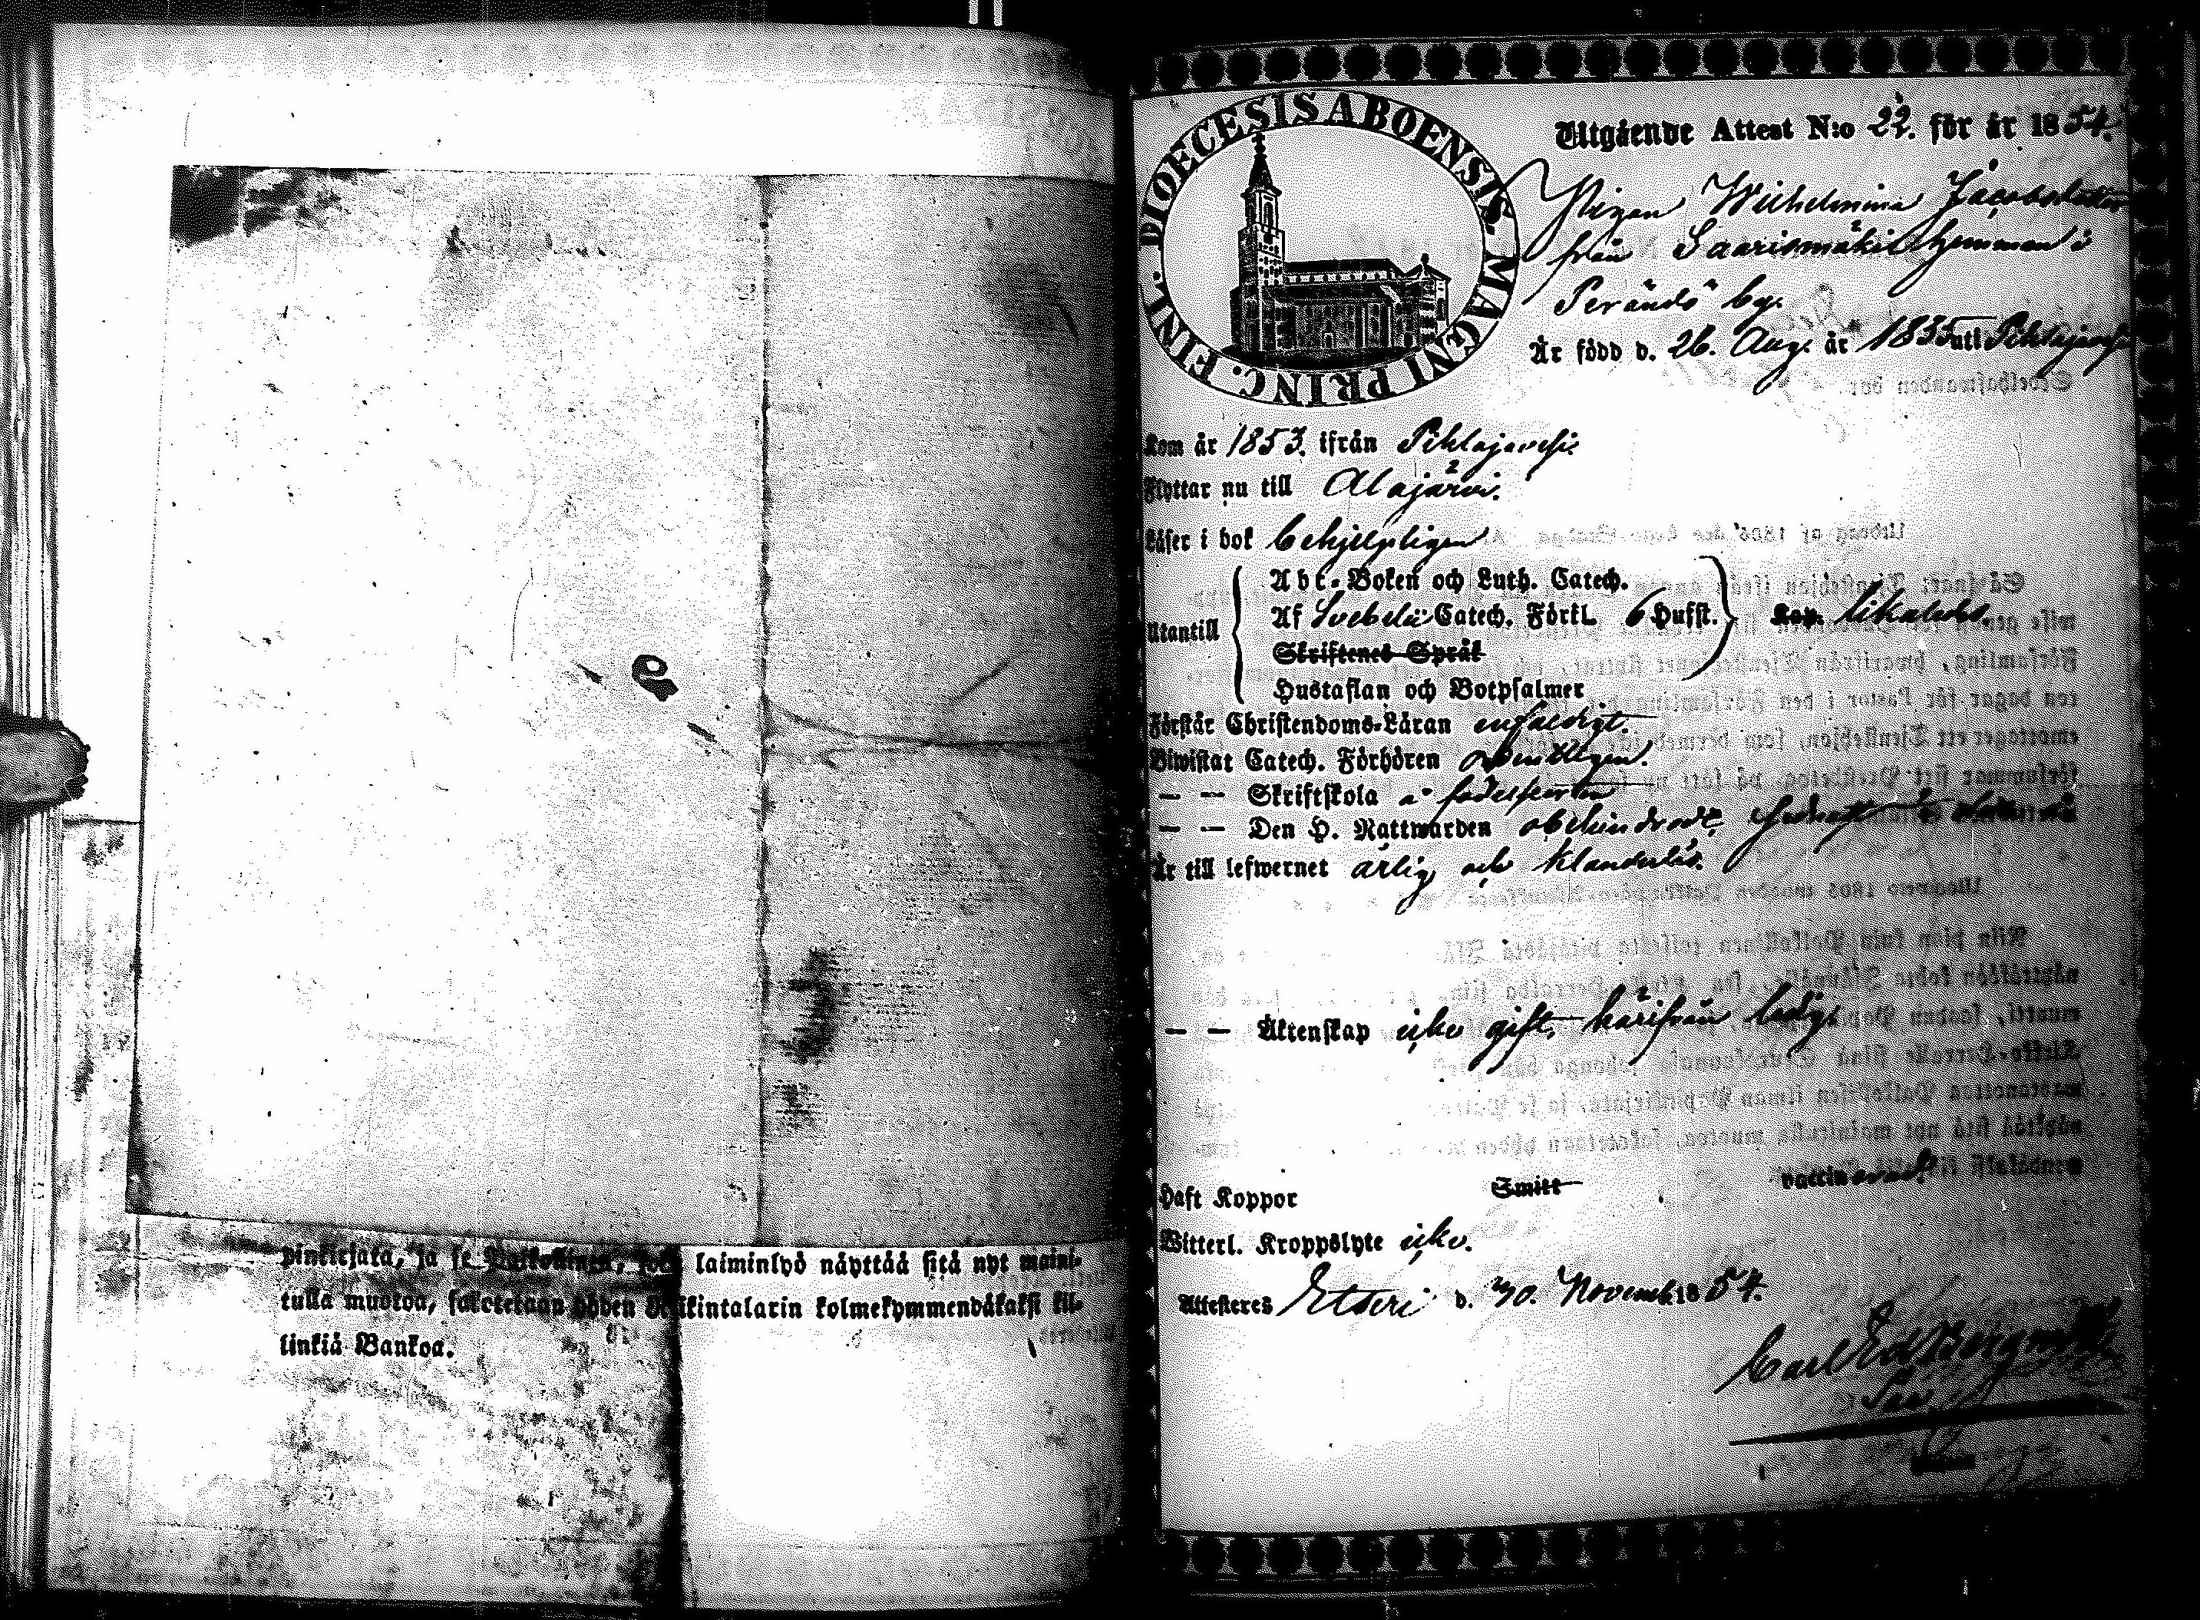 pinkirjata, ja se laiminlyö näyttää sitä nyt maini-
tulla muotoa, sakotetaan yhden Riikintalarin kolmekymmendäkaksi kil-
linkiä Bankoa.
DIOECESIS ABOENSIS. MAGNI PRINC. FINL.
Utgående Attest N:o 22. för år 1854.
Pigan Wilhelmina Jacobsdotter
från Saarismäki hemman i
Perändö by.
Är född d. 26. Aug. år 1835 uti Pihlajavesi
Kom år 1853. ifrån Pihlajavesi.
Flyttar nu till Alajärvi.
Läser i bok behjelpligen
Utantill
Abc-Boken och Luth. Catech.
Af Svebelii Catech. Förkl. 6 Husst. Kap. likaledes.
Skriftenes Språk
Hustaflan och Botpsalmer
Förstår Christendoms-Läran enfaldigt.
Biwistat Catech. Förhören ordentligen.
— — Skriftskola i födelseorten
— — Den H. Nattwarden obehindrad,
Är till lefwernet ärlig och klanderlös.
— — Äktenskap icke gift, härifrån ledig.
Haft Koppor Smitt vaccinerad.
Witterl. Kroppslyte icke.
Attesteres Etseri d. 30. Novemb. 1854.
Carl Ed Bergm